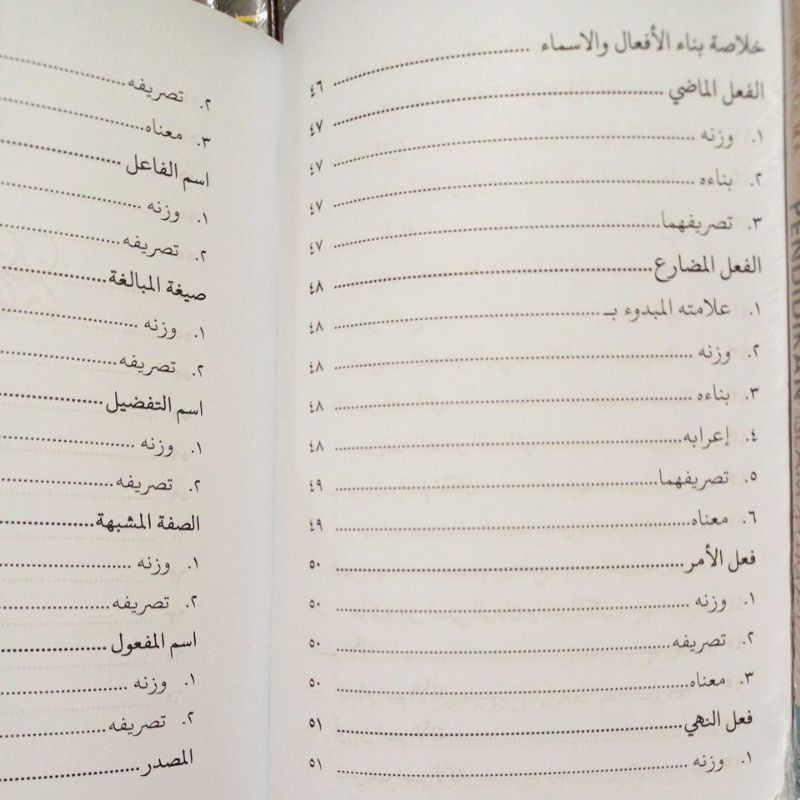 خلاصة بناء الأفعال والاسماء ........ ٤٦
الفعل الماضي ........ ٤٧
١. وزنه ........ ٤٧
٢. بناءه ........ ٤٧
٣. تصريفهما ........ ٤٧
الفعل المضارع ........ ٤٨
١. علامته المبدوء بـ ........ ٤٨
٢. وزنه ........ ٤٨
٣. بناءه ........ ٤٨
٤. إعرابه ........ ٤٨
٥. تصريفهما ........ ٤٩
٦. معناه ........ ٤٩
فعل الأمر ........ ٥٠
١. وزنه ........ ٥٠
٢. تصريفه ........ ٥٠
٣. معناه ........ ٥٠
فعل النهي ........ ٥١
١. وزنه ........ ٥١
٢. تصريفه ........
٣. معناه ........
اسم الفاعل ........
١. وزنه ........
٢. تصريفه ........
صيغة المبالغة ........
١. وزنه ........
٢. تصريفه ........
اسم التفضيل ........
١. وزنه ........
٢. تصريفه ........
الصفة المشبهة ........
١. وزنه ........
٢. تصريفه ........
اسم المفعول ........
١. وزنه ........
٢. تصريفه ........
المصدر ........
PENDIDIKAN